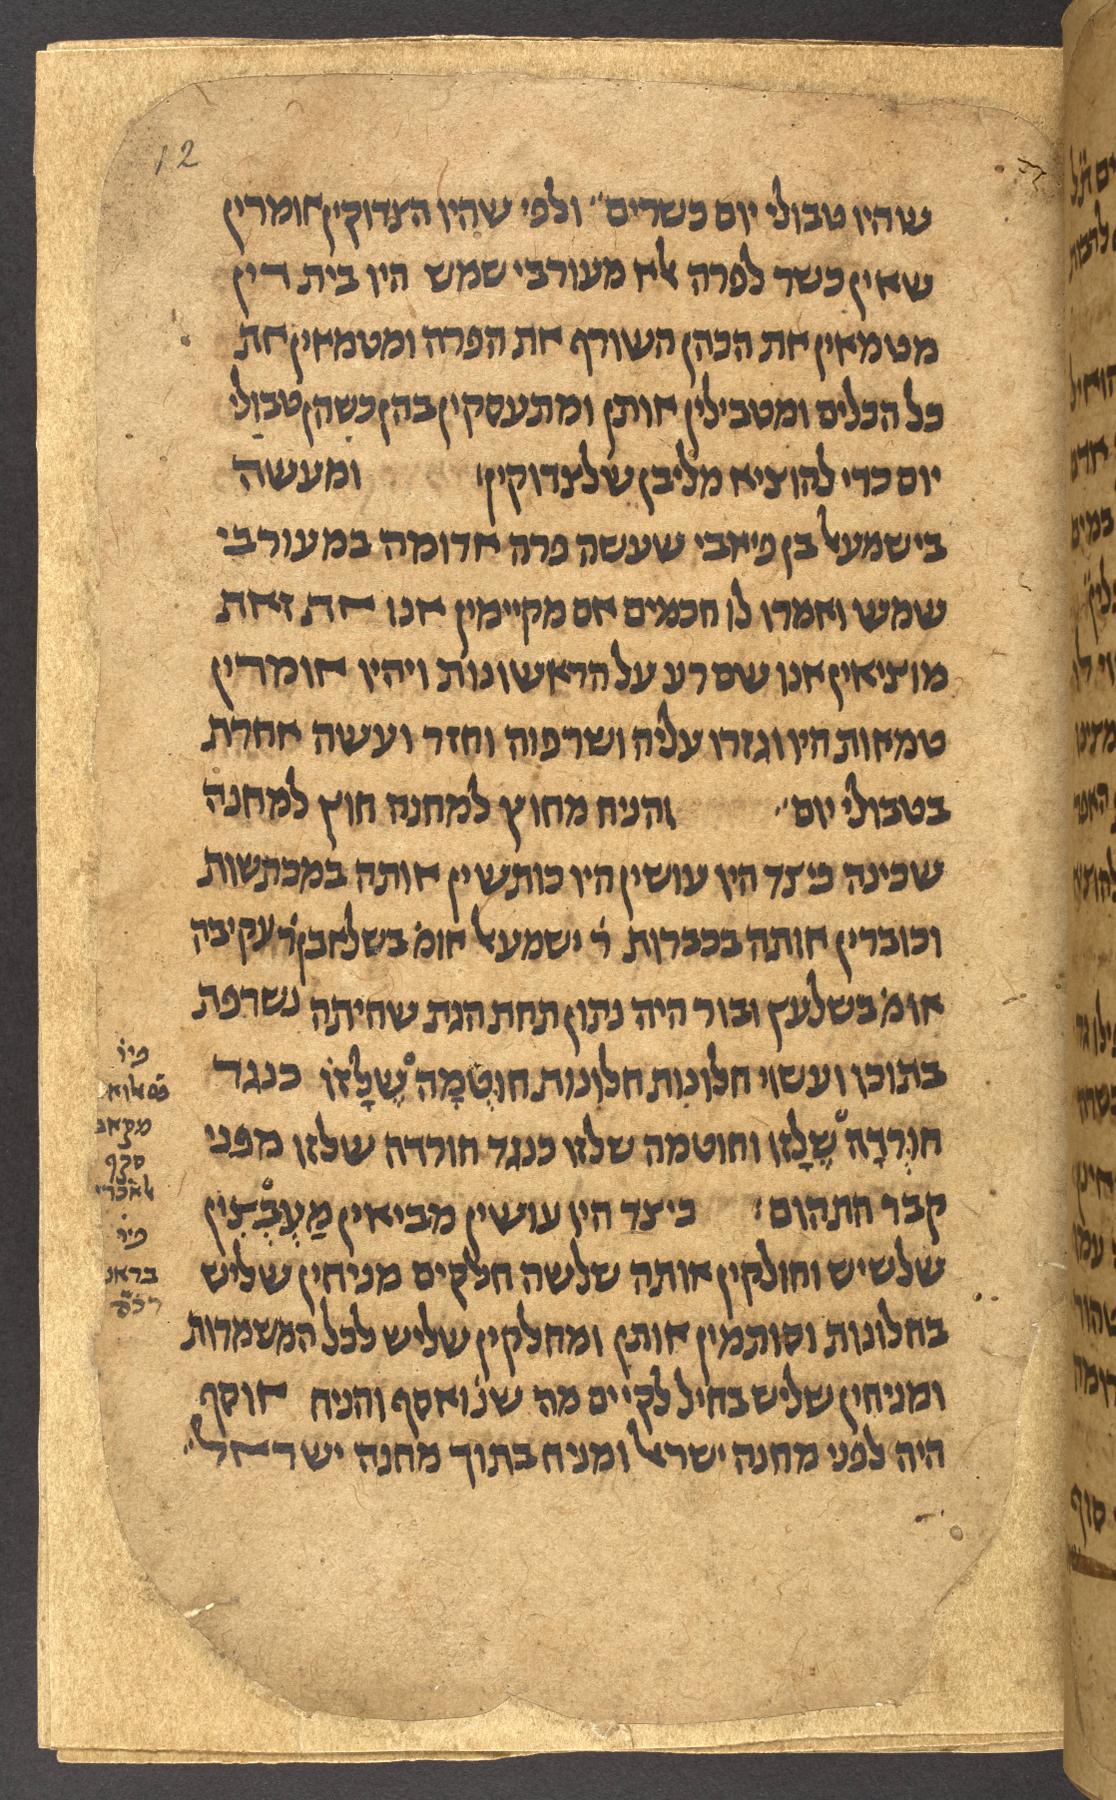 12
שהיו טבולי יום כשרים׳׳ ולפי שהיו הצדוקין אומרין
שאין כשר לפרה אלא מעורבי שמש היו בית דין
מטמאין את הכהן השורף את הפרה ומטמאין את
כל הכלים ומטבילין אותן ומתעסקין בהן כשהן טבולי
יום כדי להוציא מליבן שלצדוקין׃ ומעשה
בישמעאל בן פיאבי שעשה פרה אדומה במעורבי
שמש ואמרו לו חכמים אם מקיימין אנו את זאת
מוציאין אנו שם רע על הראשונות ויהיו אומרין
טמאות היו וגזרו עליה ושרפוה וחזר ועשה אחרת
בטבולי יום׳׳ והניח מחוץ למחנה חוץ למחנה
שכינה כיצד היו עושין היו כותשין אותה במכתשות
וכוברין אותה בכברות ר׳ ישמעאל אומ׳ בשלאבן ר׳ עקיבה
אומ׳ בשלעץ ובור היה נתון תחת הגת שחיתה נשרפת
בתוכו ועשוי חלונות חלונות חוּטְמָה שֶׁלָזוֹ כנגד
חוּרְדָה שֶׁלָזו וחוטמה שלזו כנגד חורדה שלזו מפני
קבר התהום׃ כיצד היו עושין מביאין מַעֲבִיצִין
שלשיש וחולקין אותה שלשה חלקים מניחין שליש
בחלונות וסותמין אותן ומחלקין שליש לכל המשמרות
ומניחין שליש בחיל לקיים מה שנ׳ ואסף והניח אוסף
היה לפני מחנה ישראל ומניח בתוך מחנה ישראל׳׳